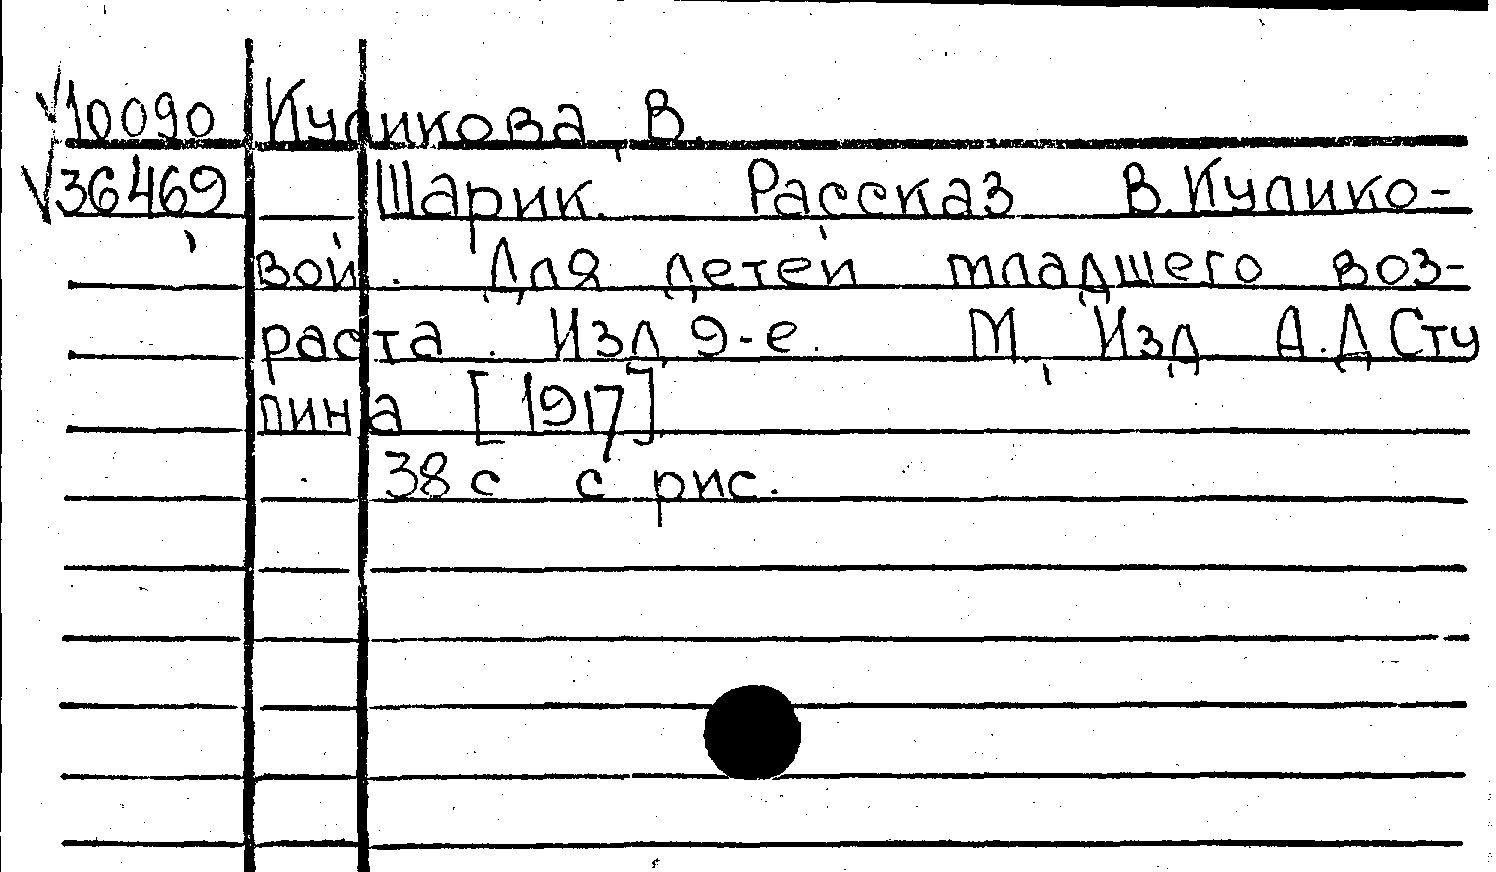 √10090 Куликова, В.
√36469 Шарик. Рассказ В. Кулико-
вой. Для детей младшего воз-
раста. Изд. 9-е. М, Изд. А.Д Сту
пина [1917]
38 с с рис.